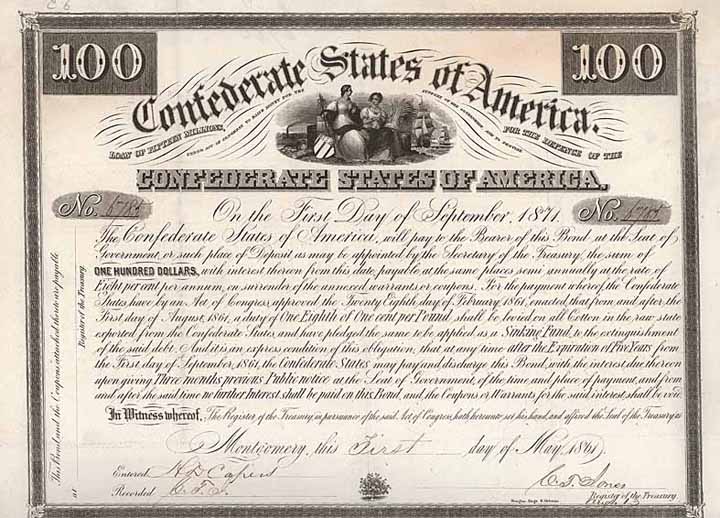 100 100
Confederate States of America.
LOAN OF FIFTEEN MILLIONS,
UNDER ACT OF CONGRESS TO RAISE MONEY FOR THE SUPPORT OF THE GOVERNMENT, AND TO PROVIDE
FOR THE DEFENCE OF THE
CONFEDERATE STATES OF AMERICA.
No. No.
On the First Day of September, 1871.
The Confederate States of America, will pay to the Bearer of this Bond, at the Seat of
Government, or such place of Deposit as may be appointed by the Secretary of the Treasury, the sum of
ONE HUNDRED DOLLARS, with interest thereon from this date, payable at the same places semi annually at the rate of
Eight per cent per annum, on surrender of the annexed warrants or coupons. For the payment whereof the Confederate
States have, by an Act of Congress, approved the Twenty Eighth, day of February, 1861, enacted, that from and after, the
First day of August, 1861, a duty of One Eighth of One cent per Pound, shall be levied on all Cotton in the raw state
exported from the Confederate States, and have pledged the same to be applied as a Sinking Fund, to the extinguishment
of the said debt. And it is an express condition of this obligation, that at any time after the Expiration of Five Years from
the First day of September, 1861, the Confederate States may pay and discharge this Bond, with the interest due thereon
upon giving Three months previous Public notice at the Seat of Government, of the time and place of payment, and from
and after the said time no further Interest shall be paid on this Bond, and the Coupons or Warrants for the said interest, shall be void.
In Witness whereof, The Register of the Treasury, in pursuance of the said Act of Congress, hath hereunto set his hand, and affixed the Seal of the Treasury, at
Montgomery, this First day of May, 1861.
Entered H D Capers
Recorded
C. T. Jones
Register of the Treasury
This Bond, and the Coupons attached thereto are payable
at
Register of the Treasury.